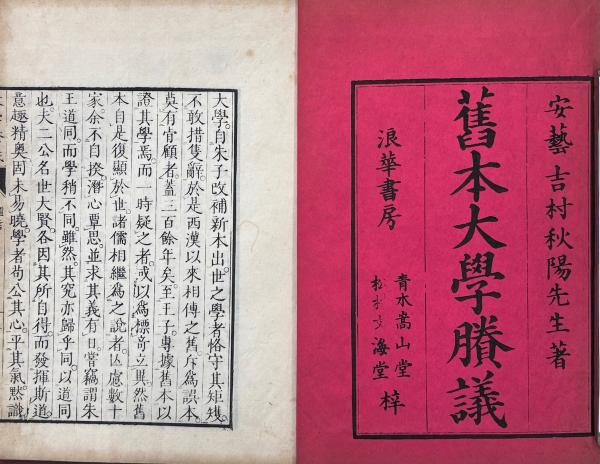 安藝吉村秋陽先生著
舊本大學賸議
青木嵩山堂
松村文海堂
梓
浪華書房
大學。自朱子改補新本出。世之學者恪守其矩矱。
不敢措隻辭。於是西漢以來相傳之舊。斥爲誤本。
莫有肯顧者。蓋三百餘年矣。至王子專據舊本以
證其學焉。而一時疑之者。或以爲標竒立異。然舊
本自是復顯於世。諸儒相繼爲之說者。亡慮數十
家。余不自揆。潛心覃思。並求其義有日。嘗竊謂朱
王道同。而學稍不同。雖然。其究亦歸乎同。以道同
也。夫二公名世大賢。各因其所自得。而發揮斯道。
意趣精奧。固未易曉。學者苟公其心。平其氣。默識